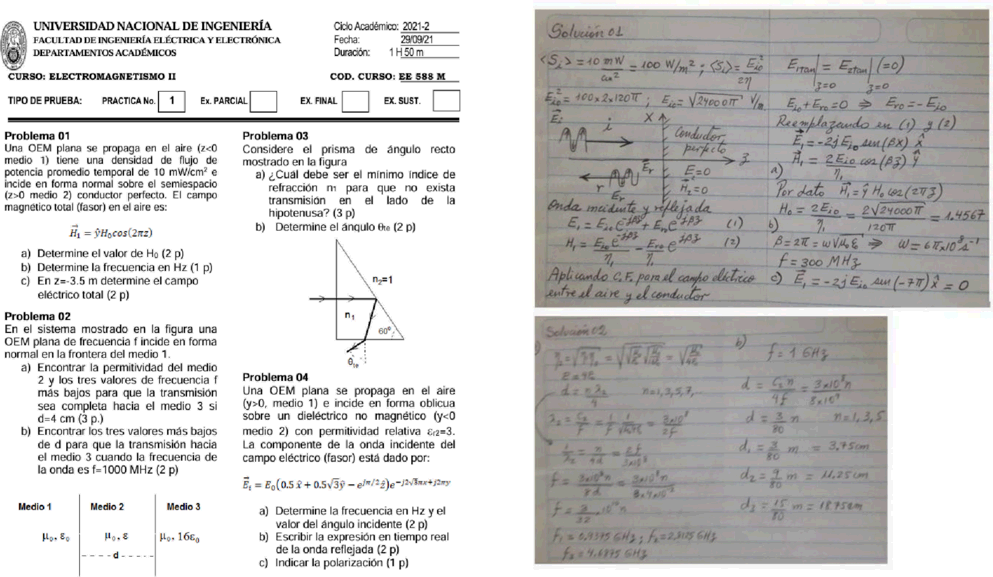 UNIVERSIDAD NACIONAL DE INGENIERÍA
FACULTAD DE INGENIERÍA ELÉCTRICA Y ELECTRÓNICA
DEPARTAMENTOS ACADÉMICOS
Ciclo Académico: 2021-2
Fecha: 29/09/21
Duración: 1 H 50 m
CURSO: ELECTROMAGNETISMO II
COD. CURSO: EE 588 M
TIPO DE PRUEBA: PRACTICA No. 1 Ex. PARCIAL Ex. FINAL Ex. SUST.
Problema 01
Una OEM plana se propaga en el aire (z<0
medio 1) tiene una densidad de flujo de
potencia promedio temporal de 10 mW/cm² e
incide en forma normal sobre el semiespacio
(z>0 medio 2) conductor perfecto. El campo
magnético total (fasor) en el aire es:
H⃗₁ = ŷH₀cos(2πz)
a) Determine el valor de H₀ (2 p)
b) Determine la frecuencia en Hz (1 p)
c) En z=-3.5 m determine el campo
eléctrico total (2 p)
Problema 02
En el sistema mostrado en la figura una
OEM plana de frecuencia f incide en forma
normal en la frontera del medio 1.
a) Encontrar la permitividad del medio
2 y los tres valores de frecuencia f
más bajos para que la transmisión
sea completa hacia el medio 3 si
d=4 cm (3 p.)
b) Encontrar los tres valores más bajos
de d para que la transmisión hacia
el medio 3 cuando la frecuencia de
la onda es f=1000 MHz (2 p)
Medio 1 Medio 2 Medio 3
μ₀, ε₀ μ₀, ε μ₀, 16ε₀
d
Problema 03
Considere el prisma de ángulo recto
mostrado en la figura
a) ¿Cuál debe ser el mínimo índice de
refracción n₁ para que no exista
transmisión en el lado de la
hipotenusa? (3 p)
b) Determine el ángulo θte (2 p)
n₂=1
n₁
60°
Problema 04
Una OEM plana se propaga en el aire
(y>0, medio 1) e incide en forma oblicua
sobre un dieléctrico no magnético (y<0
medio 2) con permitividad relativa εr2=3.
La componente de la onda incidente del
campo eléctrico (fasor) está dado por:
E⃗ᵢ = E₀(0.5 x̂ + 0.5√3ŷ − e^{jπ/2} ẑ)e^{−j2√3πx+j2πy}
a) Determine la frecuencia en Hz y el
valor del ángulo incidente (2 p)
b) Escribir la expresión en tiempo real
de la onda reflejada (2 p)
c) Indicar la polarización (1 p)
Solución 01
<Sᵢ> = 10 mW/cm² = 100 W/m² ; <Sᵢ> = Eio²/2η
Eio² = 100x2x120π ; Eio = √24000π V/m
Eᵢ X
i
Conductor
perfecto
z
Er E=0
r H₂=0
Er
Onda incidente y reflejada
(1)
(2)
Aplicando C.F. para el campo eléctrico
entre el aire y el conductor
E1tan|z=0 = E2tan|z=0 (=0)
Eio + Ero = 0 ⇒ Ero = -Eio
Reemplazando en (1) y (2)
E⃗₁ = -2j Eio sen(βz) x̂
a) H⃗₁ = 2Eio/η₁ cos(βz) ŷ
Por dato H⃗₁ = ŷ H₀ cos(2πz)
H₀ = 2Eio/η₁ = 2√24000π/120π = 1.4567
b)
β = 2π = ω√μ₀ε₀ ⇒ ω = 6πx10⁸ s⁻¹
f = 300 MHz
c) E⃗₁ = -2j Eio sen(-7π) x̂ = 0
Solución 02
n=1,3,5,7
b) f = 1 GHz
d = 3/80 n n=1,3,5
d₁ = 3/80 m = 3.75 cm
d₂ = 9/80 m = 11.25 cm
d₃ = 15/80 m = 18.75 cm